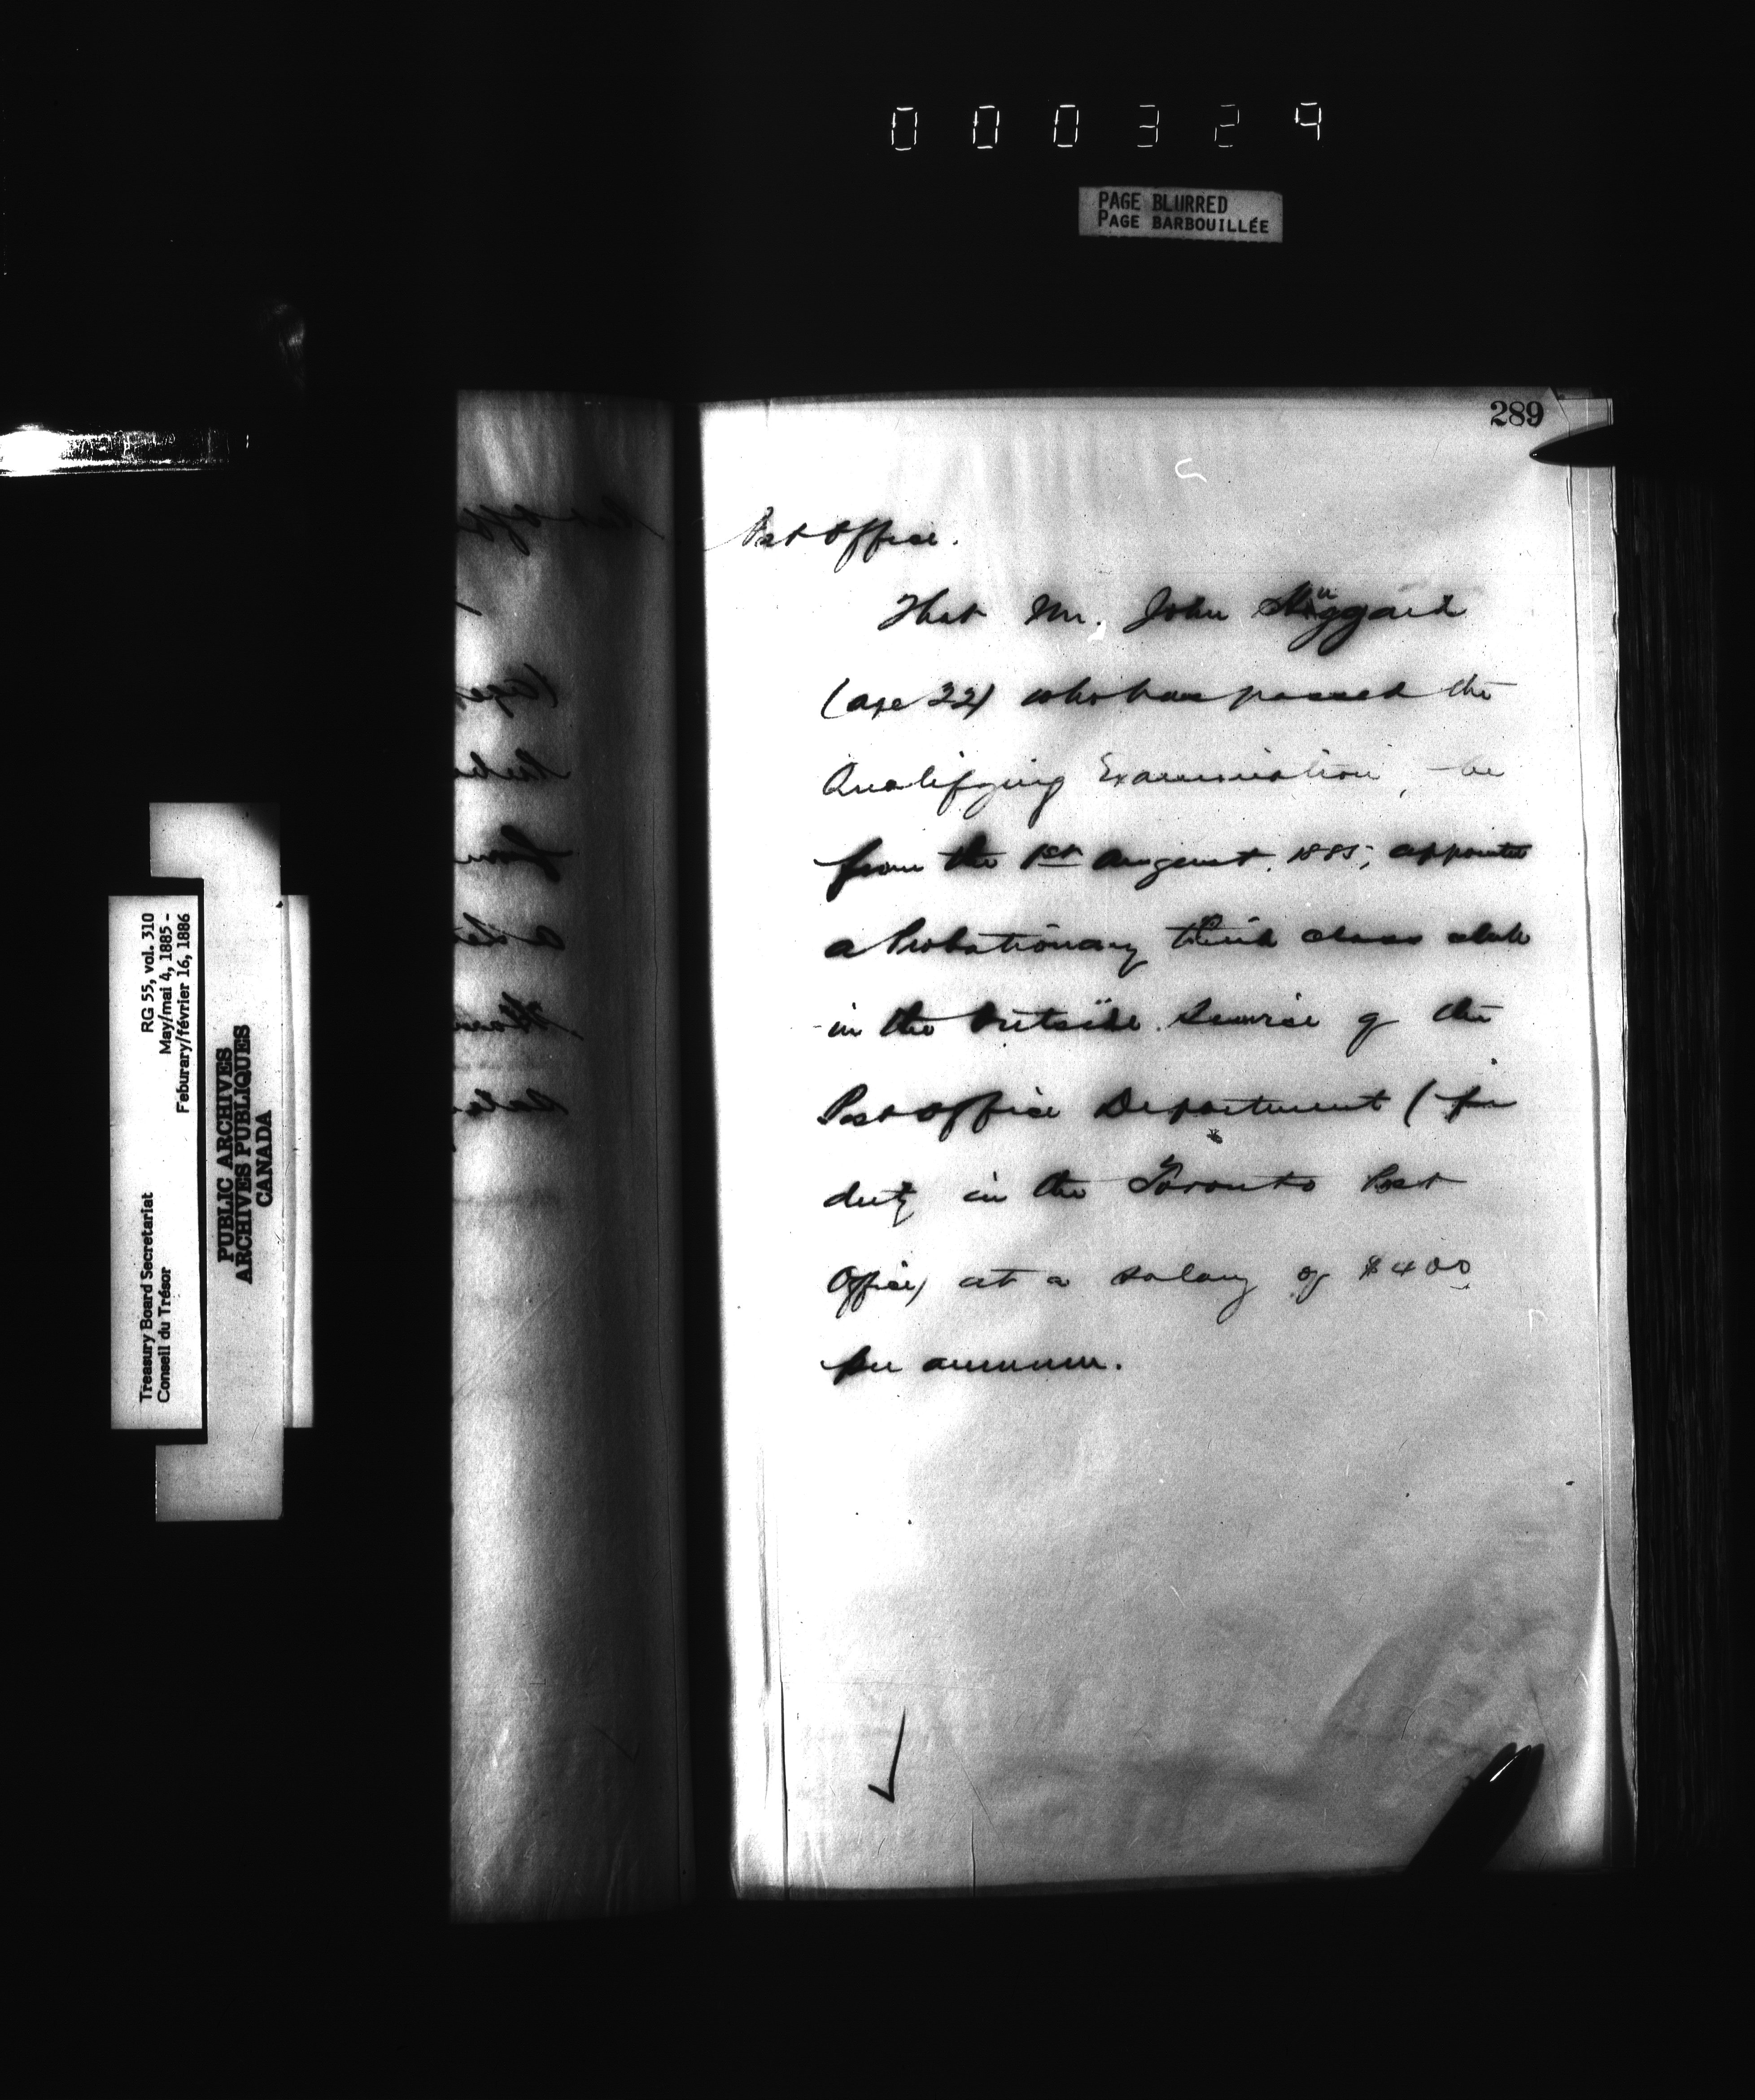 000329
PAGE BLURRED
PAGE BARBOUILLÉE
289
Post Office.
That Mr. John
(age 22) who has passed the
Qualifying Examination, be
from the 1st August, 1885, appointed
a Probationary third class clerk
in the Outside Service of the
Post Office Department (for
duty in the Toronto Post
Office) at a salary of $400
per annum.
Treasury Board Secretariat RG 55, vol. 310
Conseil du Trésor May/mai 4, 1885 -
Feburary/février 16, 1886
PUBLIC ARCHIVES
ARCHIVES PUBLIQUES
CANADA